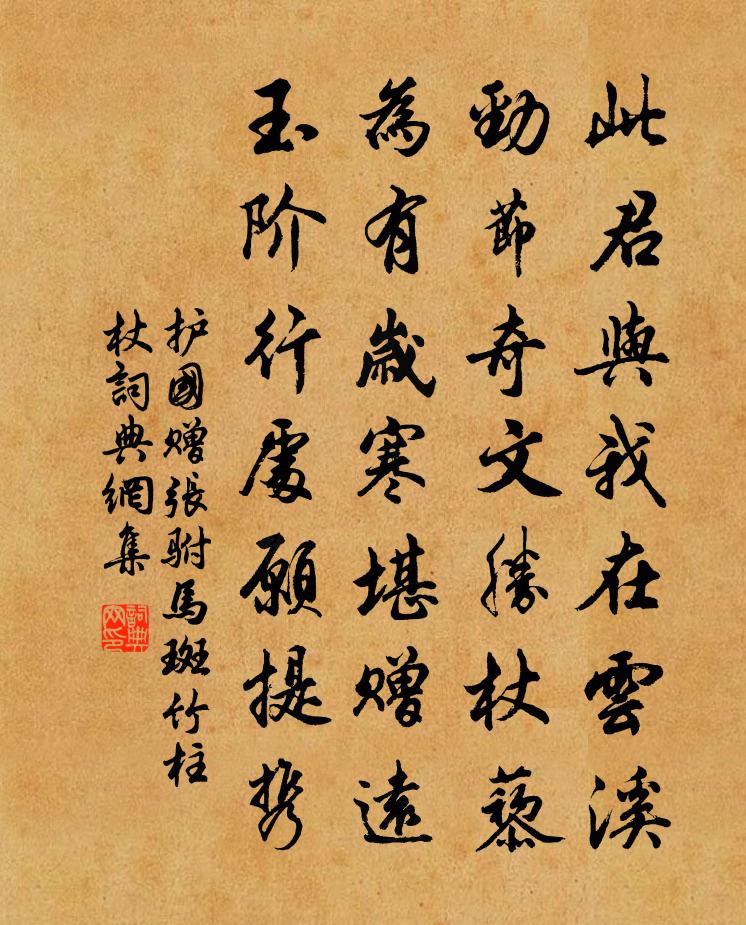 此君與我在雲溪
勁節奇文勝杖藜
為有歲寒堪赠遠
玉阶行處願提携
护國赠張駙馬斑竹柱
杖詞典網集
詞典网印